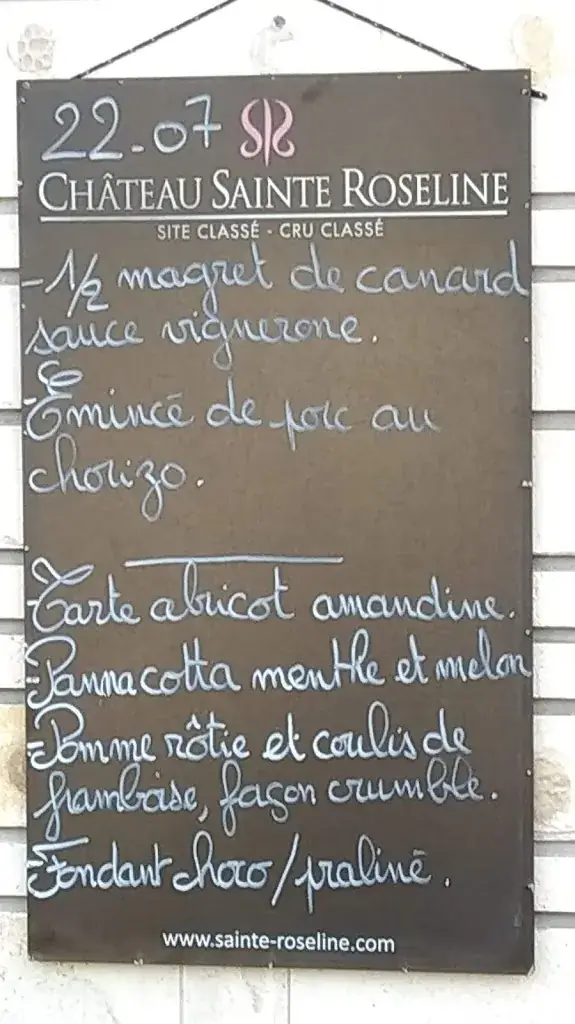 22-07
CHÂTEAU SAINTE ROSELINE
SITE CLASSÉ - CRU CLASSÉ
- 1/2 magret de canard
sauce vignerone.
- Émincé de porc au
chorizo.
- Tarte abricot amandine.
- Pannacotta menthe et melon
- Pomme rôtie et coulis de
framboise, façon crumble.
- Fondant choco/praliné.
www.sainte-roseline.com